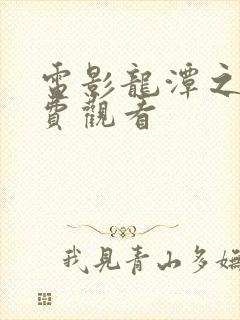 電影龍潭之
費觀看
我見青山多嫵